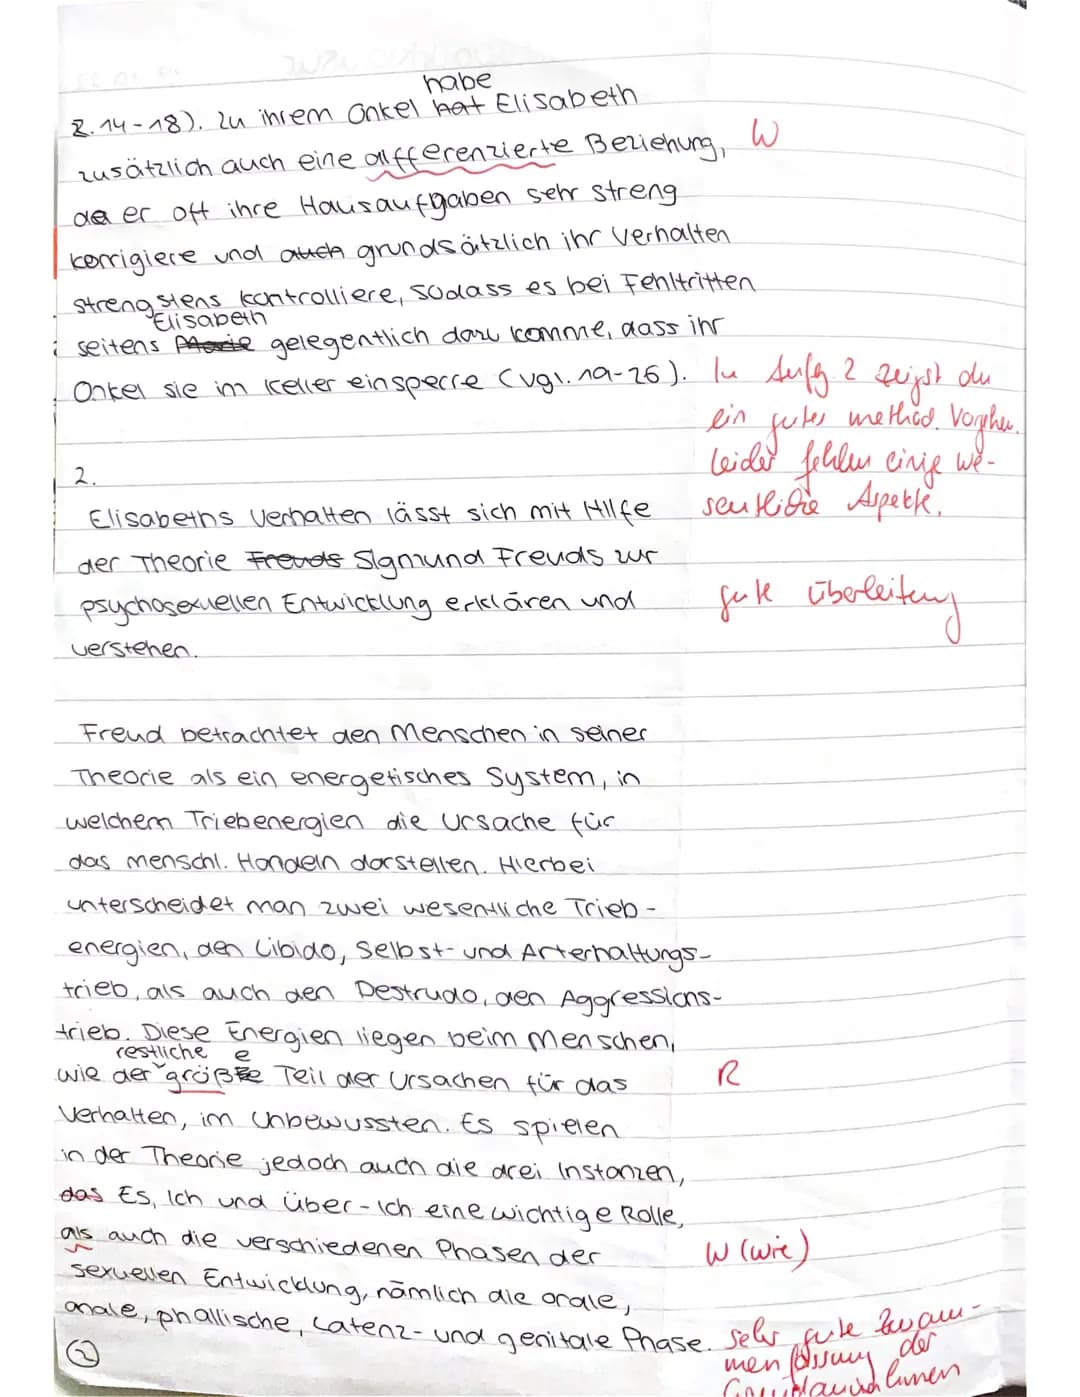 habe
Z. 14-18). Zu ihrem Onkel hat Elisabeth
zusätzlich auch eine differenzierte Beziehung, W
da er oft ihre Hausaufgaben sehr streng
korrigiere und auch grundsätzlich ihr Verhalten
strengstens kontrolliere, sodass es bei Fehltritten
Elisabeth
seitens Marie gelegentlich dazu komme, dass ihr
Onkel sie im Keller einsperre (vgl. 19-26).
In Aufg. 2 zeigst du
ein gutes method. Vorgehen.
Leider fehlen einige we-
sentliche Aspekte.
2.
Elisabeths Verhalten lässt sich mit Hilfe
der Theorie Freuds Sigmund Freuds zur
psychosexuellen Entwicklung erklären und
verstehen.
gute Überleitung
Freud betrachtet den Menschen in seiner
Theorie als ein energetisches System, in
welchem Triebenergien die Ursache für
das menschl. Handeln darstellen. Hierbei
unterscheidet man zwei wesentliche Trieb-
energien, den Libido, Selbst- und Arterhaltungs-
trieb, als auch den Destrudo, den Aggressions-
trieb. Diese Energien liegen beim Menschen,
restliche e
wie der größte Teil der Ursachen für das R
Verhalten, im Unbewussten. Es spielen
in der Theorie jedoch auch die drei Instanzen,
das Es, Ich und Über-Ich eine wichtige Rolle,
als auch die verschiedenen Phasen der W (wie)
sexuellen Entwicklung, nämlich die orale,
anale, phallische, Latenz- und genitale Phase.
sehr gute Zusam-
menfassung der
Grundannahmen
2